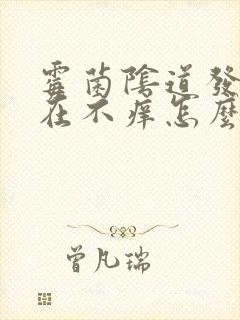 霉菌陰道發
在不痒怎麼
曾凡瑞